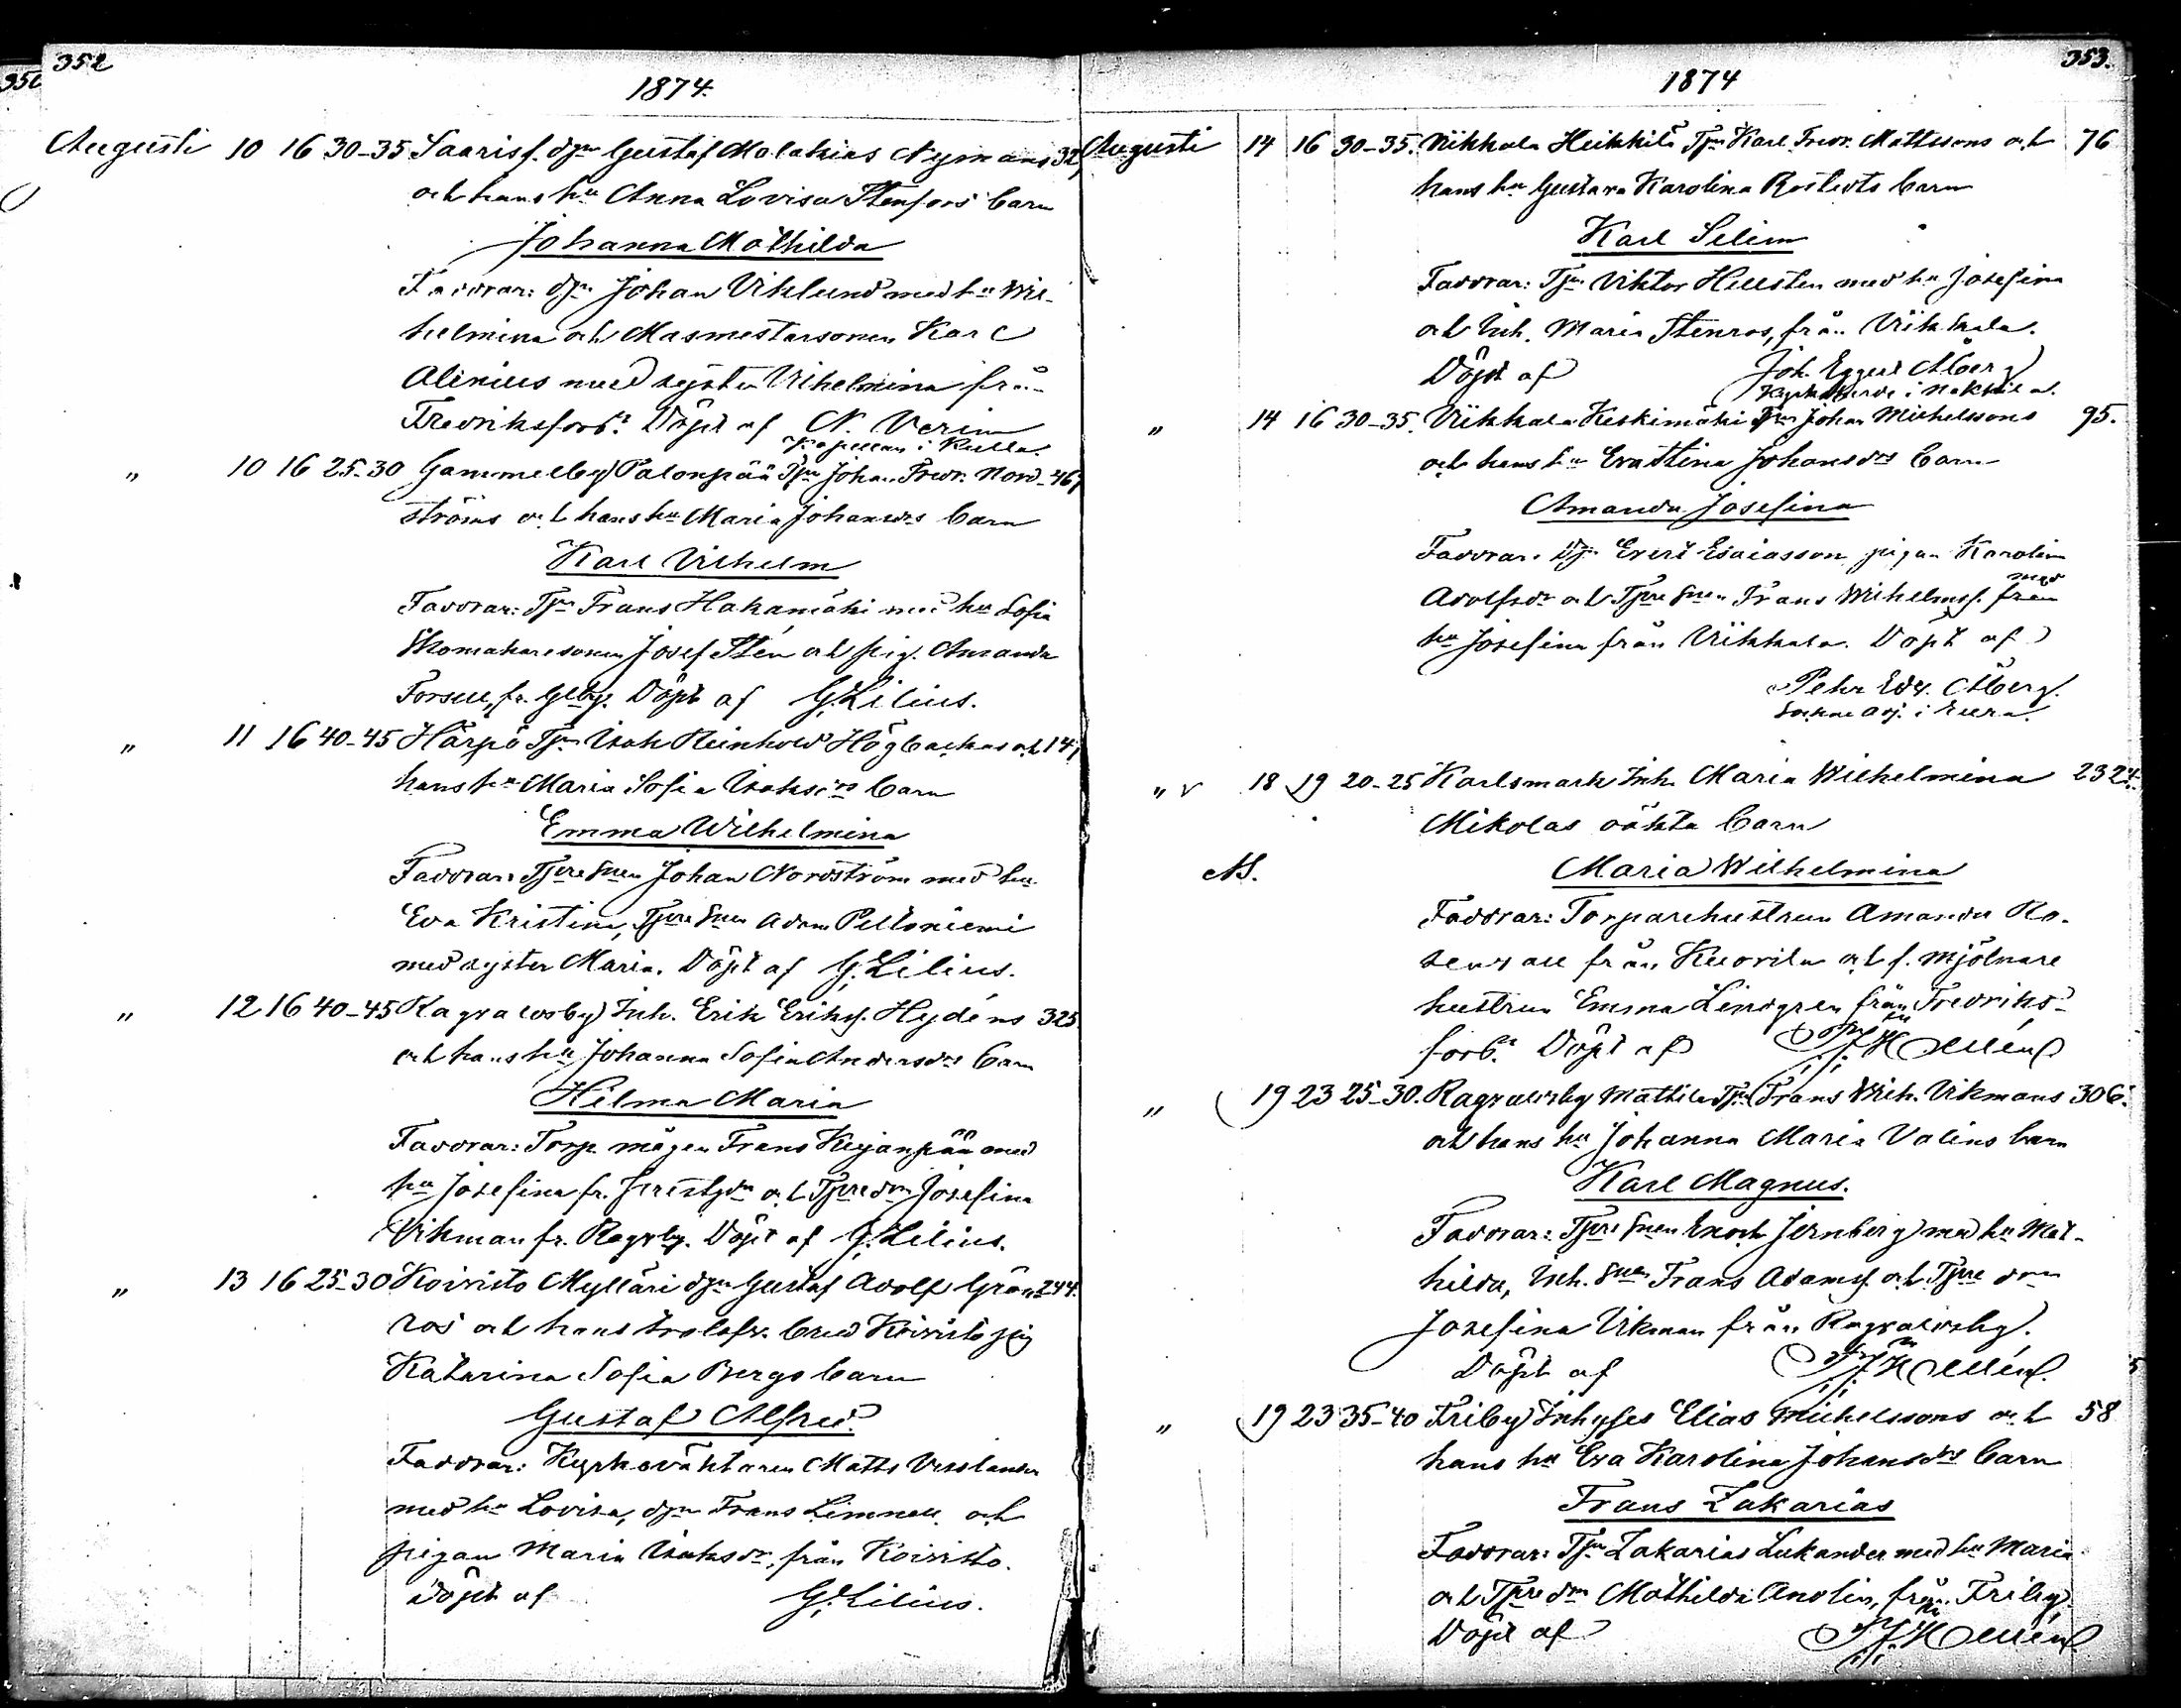 350
352
1874.
Augusti 10 16 30-35 Saarisf. dgn Gustaf Malakias Nymans 32
och hans hu Anna Lovisa Stenfors barn
Johanna Mathilda
Faddrar: dgn Johan Viklund med hu Wil-
helmina och Masmestarsonen Karl
Alenius med syster Vilhelmina från
Fredriksforss. Döpt af N. Verin
Kapellan i Kulla.
" 10 16 25-30 Gammelby Palonpää Tjn Johan Fredr. Nord- 467
ströms och hans hu Maria Johansdrs barn
Karl Vilhelm
Faddrar: Tjn Frans Hakamäki med hu Sofia
Skomakaresonen Josef Stén och pig. Amanda
Forsell, fr. Glby. Döpt af G. Lilius.
" 11 16 40-45 Härpö Tjn Isak Reinhold Högbackas och 147
hans hu Maria Sofia Isaksdrs barn
Emma Wilhelmina
Faddrar: Tjre Snen Johan Nordström med hu
Eva Kristina, Tjre Snen Adam Peltoniemi
med syster Maria. Döpt af G. Lilius.
" 12 16 40-45 Ragvaldsby Inh. Erik Eriksf. Hydéns 325
och hans hu Johanna Sofia Andersdrs barn
Hilma Maria
Faddrar: Torp. mågen Frans Kejanpää med
hu Josefina fr. och Tjre drn Josefina
Vikman fr. Ragvby. Döpt af G. Lilius.
" 13 16 25-30 Koivisto Mylläri dgn Gustaf Adolf Grön- 244.
ros och hans trolofv. brud Koivisto pig
Katarina Sofia Bergs barn
Gustaf Alfred.
Faddrar: Kyrkoväktaren Matts
med hu Lovisa, dgn Frans Limnell och
pigan Maria Isaksdr, från Koivisto.
Döpt af G. Lilius.
353.
1874
Augusti 14 16 30-35. Viikkala Heikkilä Tjn Karl Fredr. Mattssons och 76
hans hu Gustava Karolina Rostedts barn
Karl Selim
Faddrar: Tjn Viktor Hellsten med hu Josefina
och Inh. Maria Stenros, från Viikkala.
Döpt af Joh. Eggert Åberg
Kyrkoherde i Nakkila.
" 14 16 30-35. Viikkala Keskimäki Tjn Johan Mickelssons 95.
och hans hu Eva Stina Johansdrs barn
Amanda Josefina
Faddrar: Dg. Evert Esaiasson, pigan Karolina
Adolfsdr och Tjre Snen Frans Wilhelmsf. med
hu Josefina från Viikkala. Döpt af
Pehr Edv. Åberg.
Sockne adj. i Eura.
" v 18 19 20-25 Karlsmark Inh. Maria Wilhelmina 232
Mikolas oäkta barn
M. Maria Wilhelmina
Faddrar: Torparehustrun Amanda Ro-
sendall från Kuorila och f. mjölnare
hustrun Emma Lindgren från Fredriks-
forss. Döpt af
" 19 23 25-30. Ragvaldsby Mattila Tjn Frans Wilh. Vikmans 306.
och hans hu Johanna Maria Valins barn
Karl Magnus.
Faddrar: Tjre Snen Enoch Jernberg med hu Mat-
hilda, Inh. Snen Frans Adamsf. och Tjre drn
Josefina Vikman från Ragvaldsby.
Döpt af
" 19 23 35-40 Friby Inhyses Elias Mickelssons och 58
hans hu Eva Karolina Johansdrs barn
Frans Zakarias
Faddrar: Tjn Zakarias Lukander med hu Maria
och Tjre drn Mathilda Anolin, från Friby.
Döpt af